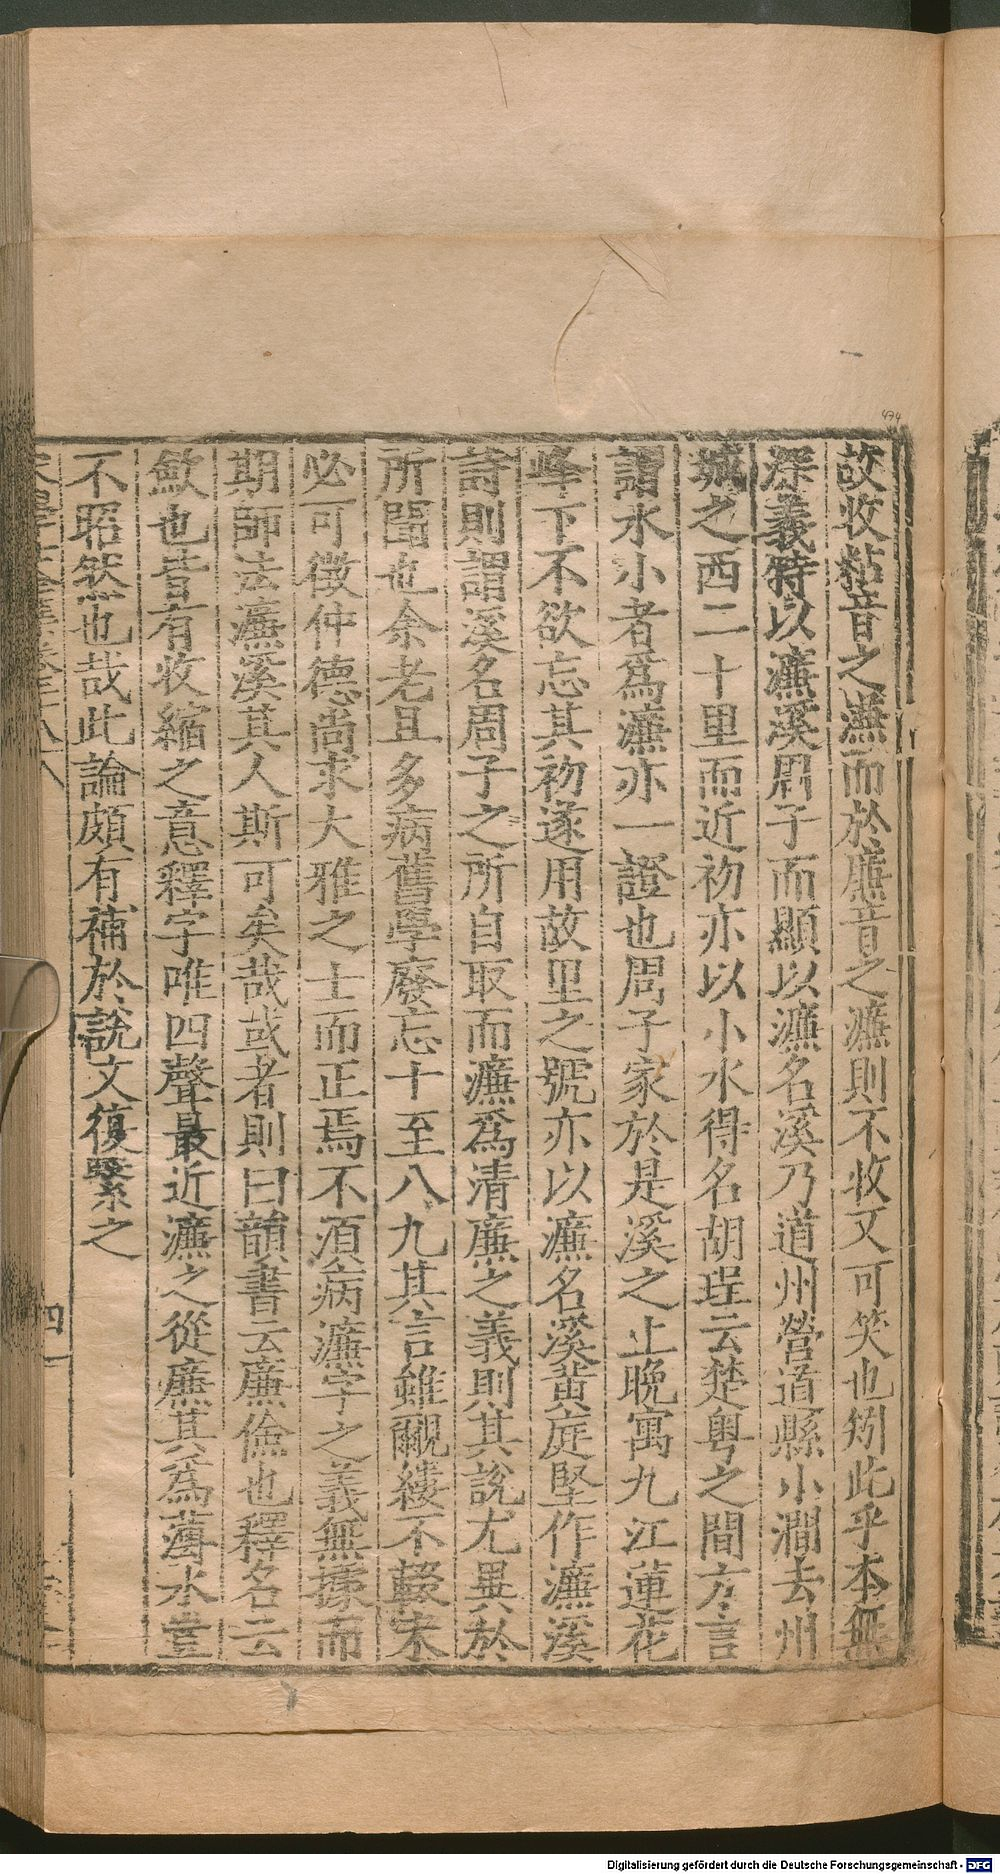 故收粘音之濂而於廉音之濂則不收又可笑也矧此乎本無
深義特以濂溪周子而顯以濂名溪乃道州營道縣小澗去州
城之西二十里而近初亦以小水得名胡珵云楚粤之間方言
謂水小者爲濂亦一證也周子家於是溪之上晚寓九江蓮花
峰下不欲忘其初遂用故里之號亦以濂名溪黄庭堅作濂溪
詩則謂溪名周子之所自取而濂爲清廉之義則其說尤異於
所聞也余老且多病舊學廢忘十至八九其言雖覼縷不輟宋
必可徵仲德尚求大雅之士而正焉不須病濂字之義無據而
期師法濂溪其人斯可矣哉或者則曰韻書云廉儉也釋名云
歛也昔有收縮之意釋字唯四聲最近濂之從廉其爲薄水豈
不昭然也哉此論頗有補於說文復繫之
四
474
Digitalisierung gefördert durch die Deutsche Forschungsgemeinschaft - DFG